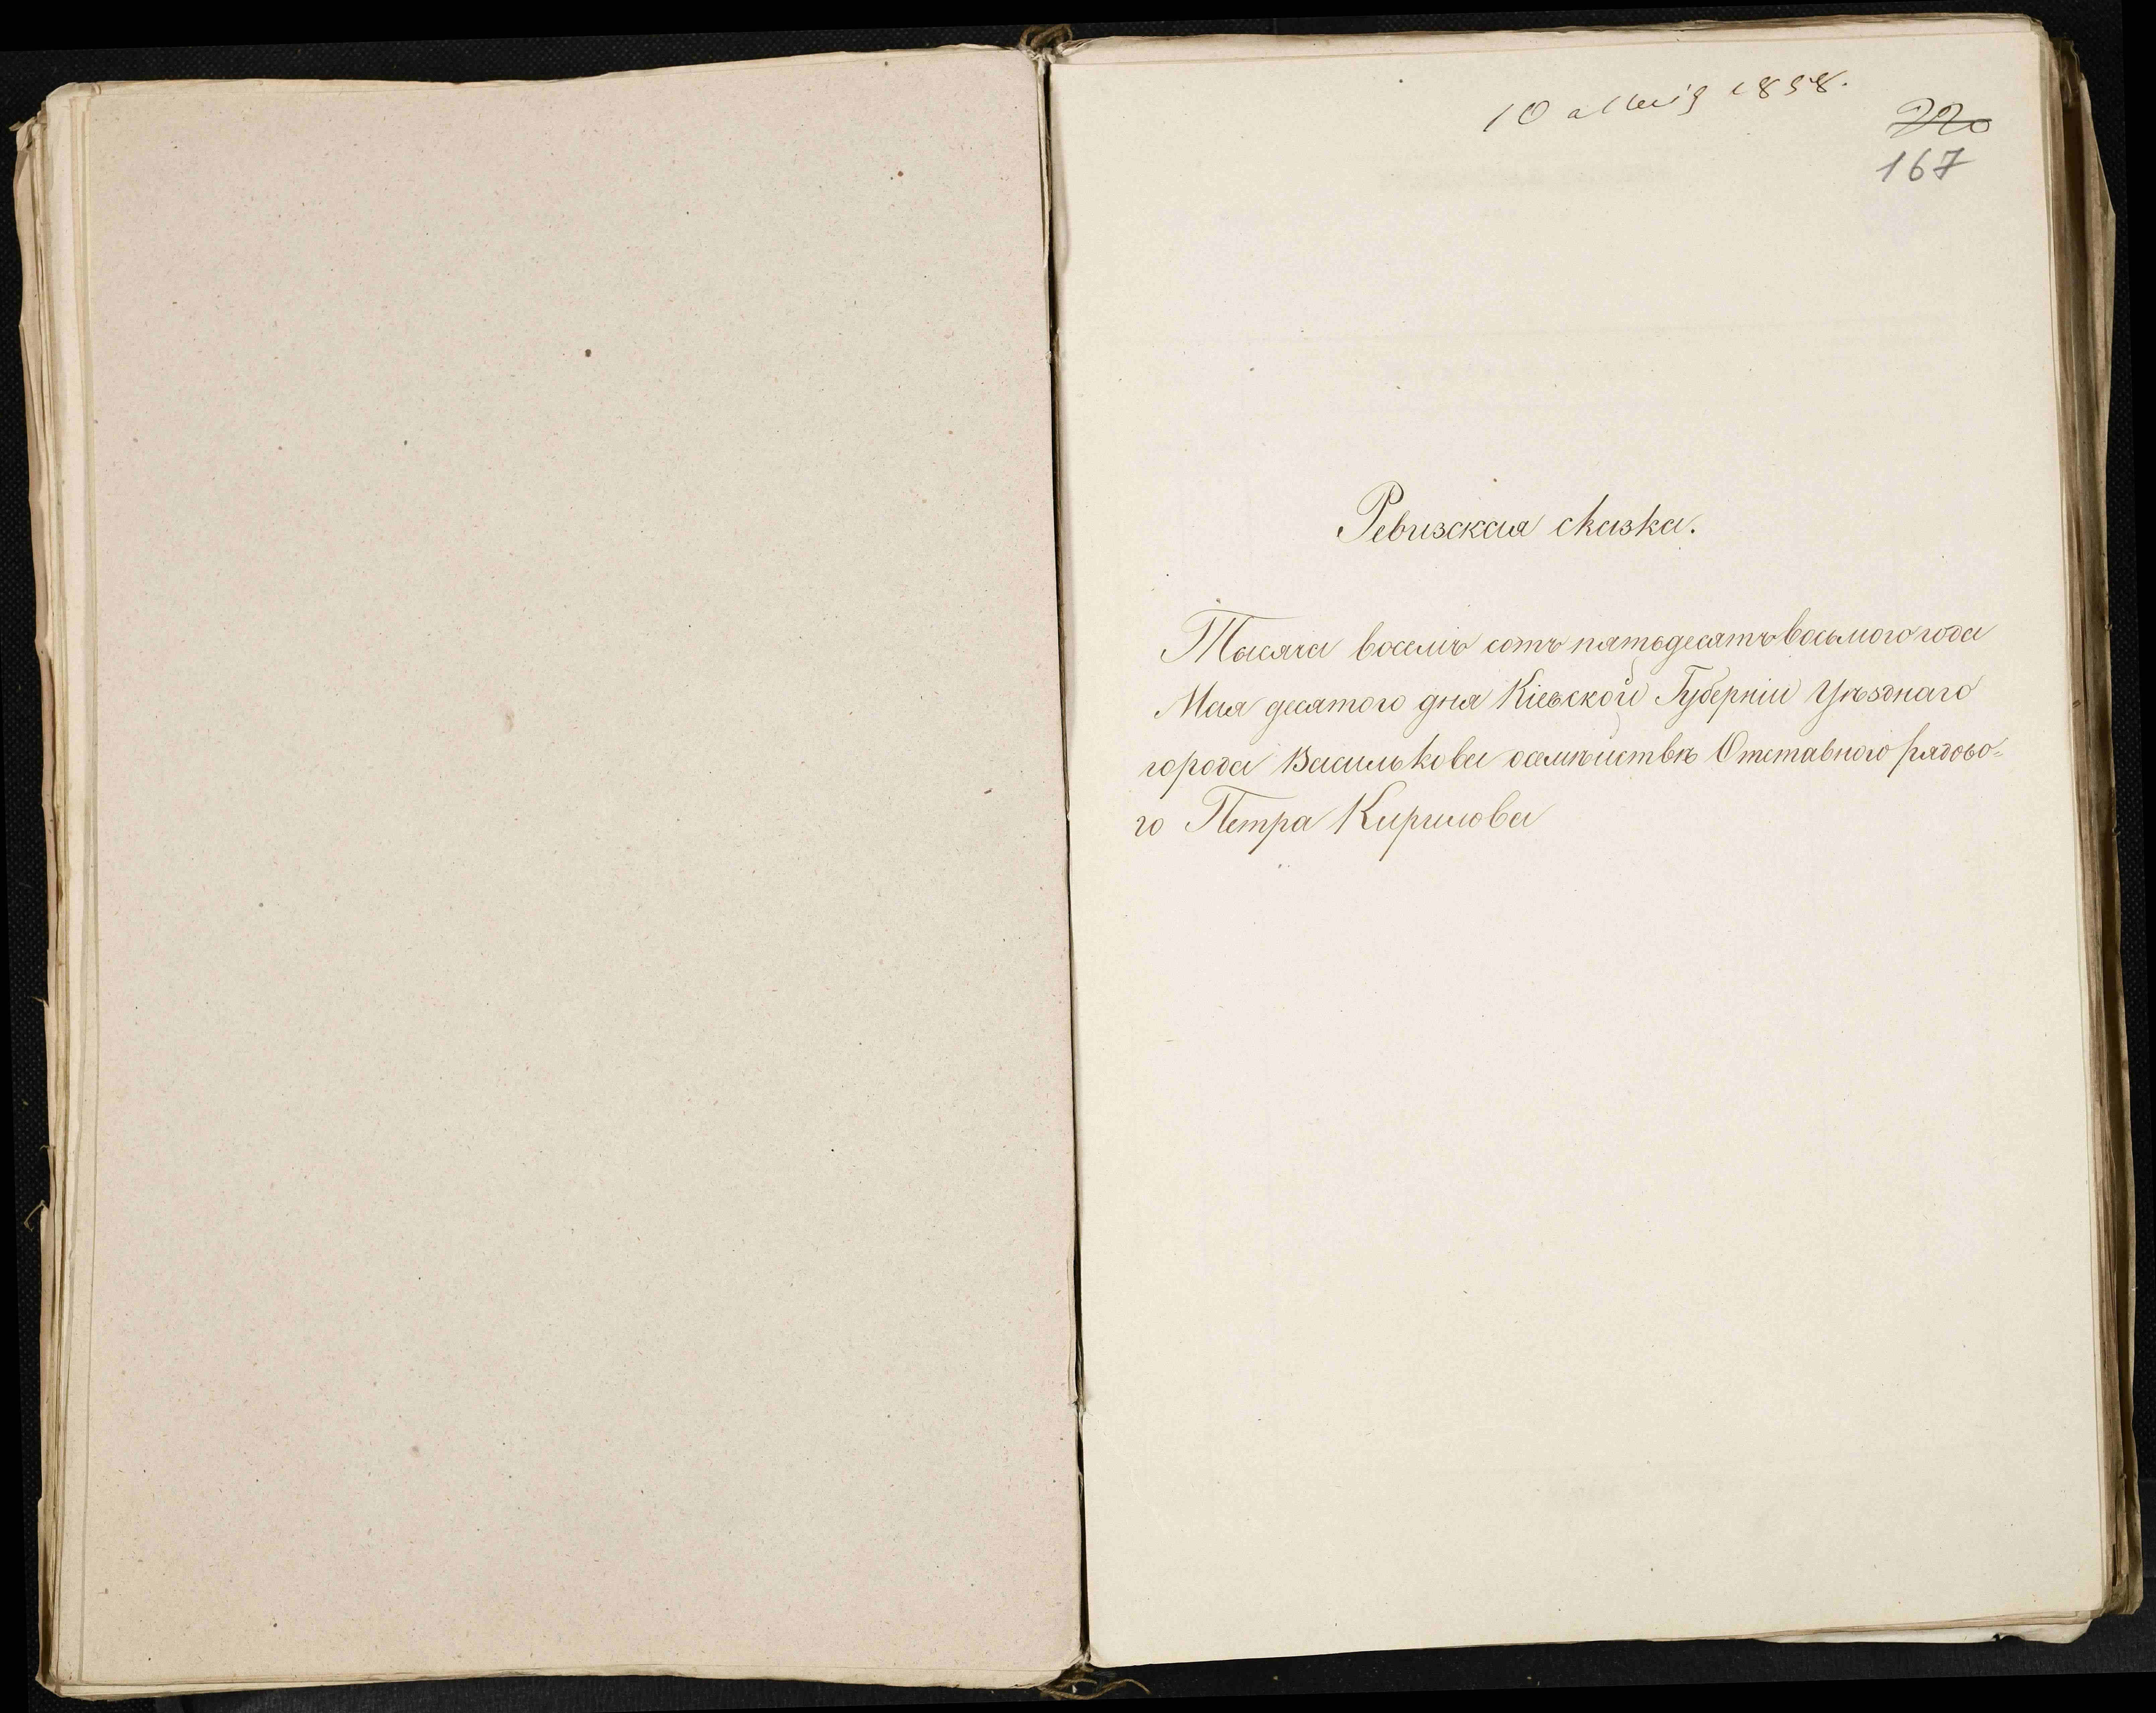 10 Мая 1858.
220
167
Ревизская сказка.
Тысяча восемь сотъ пятьдесятъ восьмого года
Мая десятого дня Кіевской Губерніи Уѣзднаго
города Василькова осемѣйствѣ Отставного рядово=
го Петра Кирилова